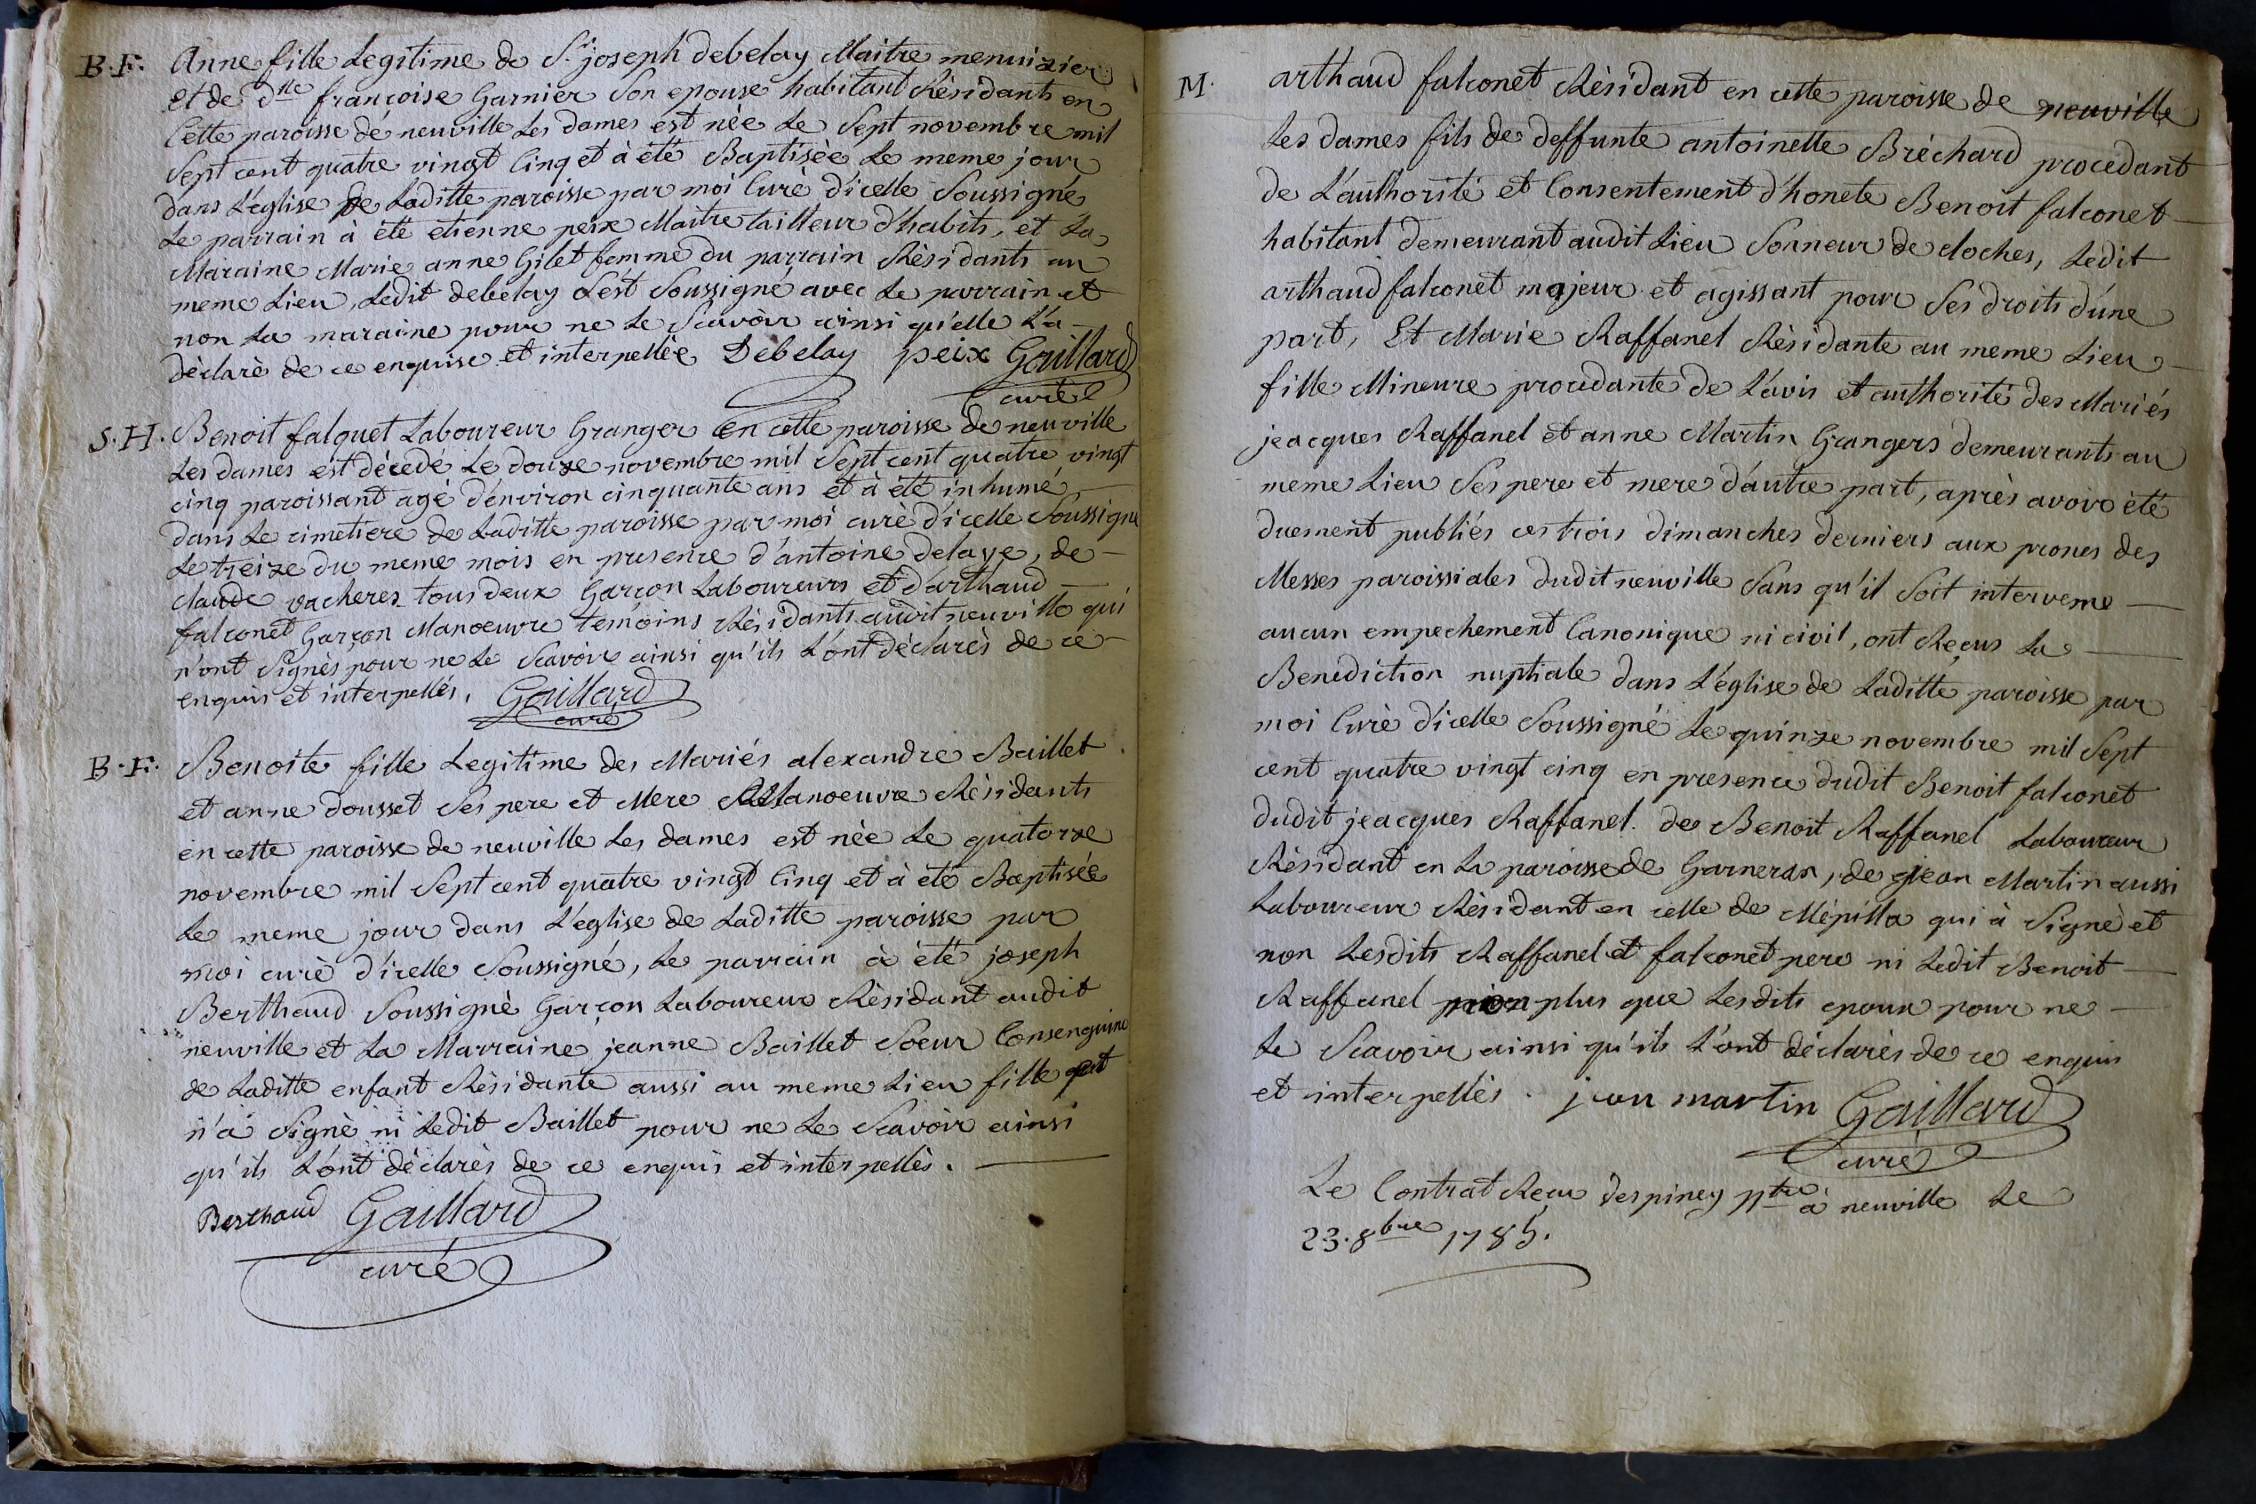 B.F. Anne fille Legitime de Sr joseph debelay Maitre menuizier
et de dlle françoise Garnier Son epouse habitant Résidants en
Cette paroisse de neuville Les dames est née Le Sept novembre mil
Sept cent quatre vingt Cinq et à été Baptisèe Le meme jour
dans L'église de Laditte paroisse par moi Curè d'icelle Soussigné
Le parrain à été etienne peix Maitre tailleur d'habits, et La
Maraine Marie anne Gilet femme du parrain Résidants au
meme Lieu, Ledit debelay s'est Soussigné avec Le parrain et
non La maraine pour ne Le Scavoir ainsi qu'elle L'a
déclarè de ce enquise et interpellèe Debelay peix Gaillard
curé
S.H. Benoit falquet Laboureur Granger en cette paroisse de neuville
Les dames est décedé Le douze novembre mil Sept cent quatre vingt
cinq paroissant agé d'environ cinquante ans et à été inhumé
dans Le cimetiere de Laditte paroisse par moi curè d'icelle Soussigné
Le treize du meme mois en presence d'antoine delaye, de
claude vacheres tous deux Garçon Laboureurs et d'arthaud
falconet Garçon Manoeuvre temoins Résidants audit neuville qui
n'ont Signès pour ne Le Scavoir ainsi qu'ils L'ont déclarès de ce
enquis et interpellés. Gaillard
curé
B.F. Benoite fille Legitime des Mariés alexandre Baillet
et anne dousset Ses pere et Mere Manoeuvre Résidants
en cette paroisse de neuville Les dames est née Le quatorze
novembre mil Sept cent quatre vingt Cinq et à été Baptisée
Le meme jour dans L'eglise de Laditte paroisse par
moi curè d'icelle Soussigné, Le parrain à été joseph
Berthaud Soussigné Garçon Laboureur Résidant audit
neuville et La Marraine jeanne Baillet Soeur Consenguine
de Laditte enfant Résidante aussi au meme Lieu fille qui
n'a Signè ni Ledit Baillet pour ne Le Scavoir ainsi
qu'ils L'ont déclarès de ce enquis et interpellès.
Berthaud Gaillard
curé
M. arthaud falconet Résidant en cette paroisse de neuville
Les dames fils de deffunte antoinette Bréchard procedant
de L'authorité et Consentement d'honete Benoit falconet
habitant demeurant audit Lieu Sonneur de cloches, Ledit
arthaud falconet majeur et agissant pour Ses droits d'une
part, Et Marie Raffanel Résidante au meme Lieu
fille Mineure procedante de L'avis et authorité des Mariés
jeacques Raffanel et anne Martin Grangers demeurants au
meme Lieu Ses pere et mere d'autre part, après avoir été
duement publiés ces trois dimanches derniers aux prones des
Messes paroissiales dudit neuville Sans qu'il Soit intervenu
aucun empechement Canonique ni civil, ont Reçus La
Benediction nuptiale dans L'église de Laditte paroisse par
moi Curè d'icelle Soussigné Le quinze novembre mil Sept
cent quatre vingt cinq en presence dudit Benoit falconet
dudit jeacques Raffanel. de Benoit Raffanel Laboureur
Résidant en La paroisse de Garneran, de jean Martin aussi
Laboureur Résidant en celle de Mépilla qui à Signè et
non Lesdits Raffanel et falconet pere ni Ledit Benoit
Raffanel non plus que Lesdits epoux pour ne
Le Scavoir ainsi qu'ils L'ont déclarès de ce enquis
et interpellès. jean martin Gaillard
curé
Le Contrat Reçu despiney Ntre à neuville Le
23. 8bre 1785.